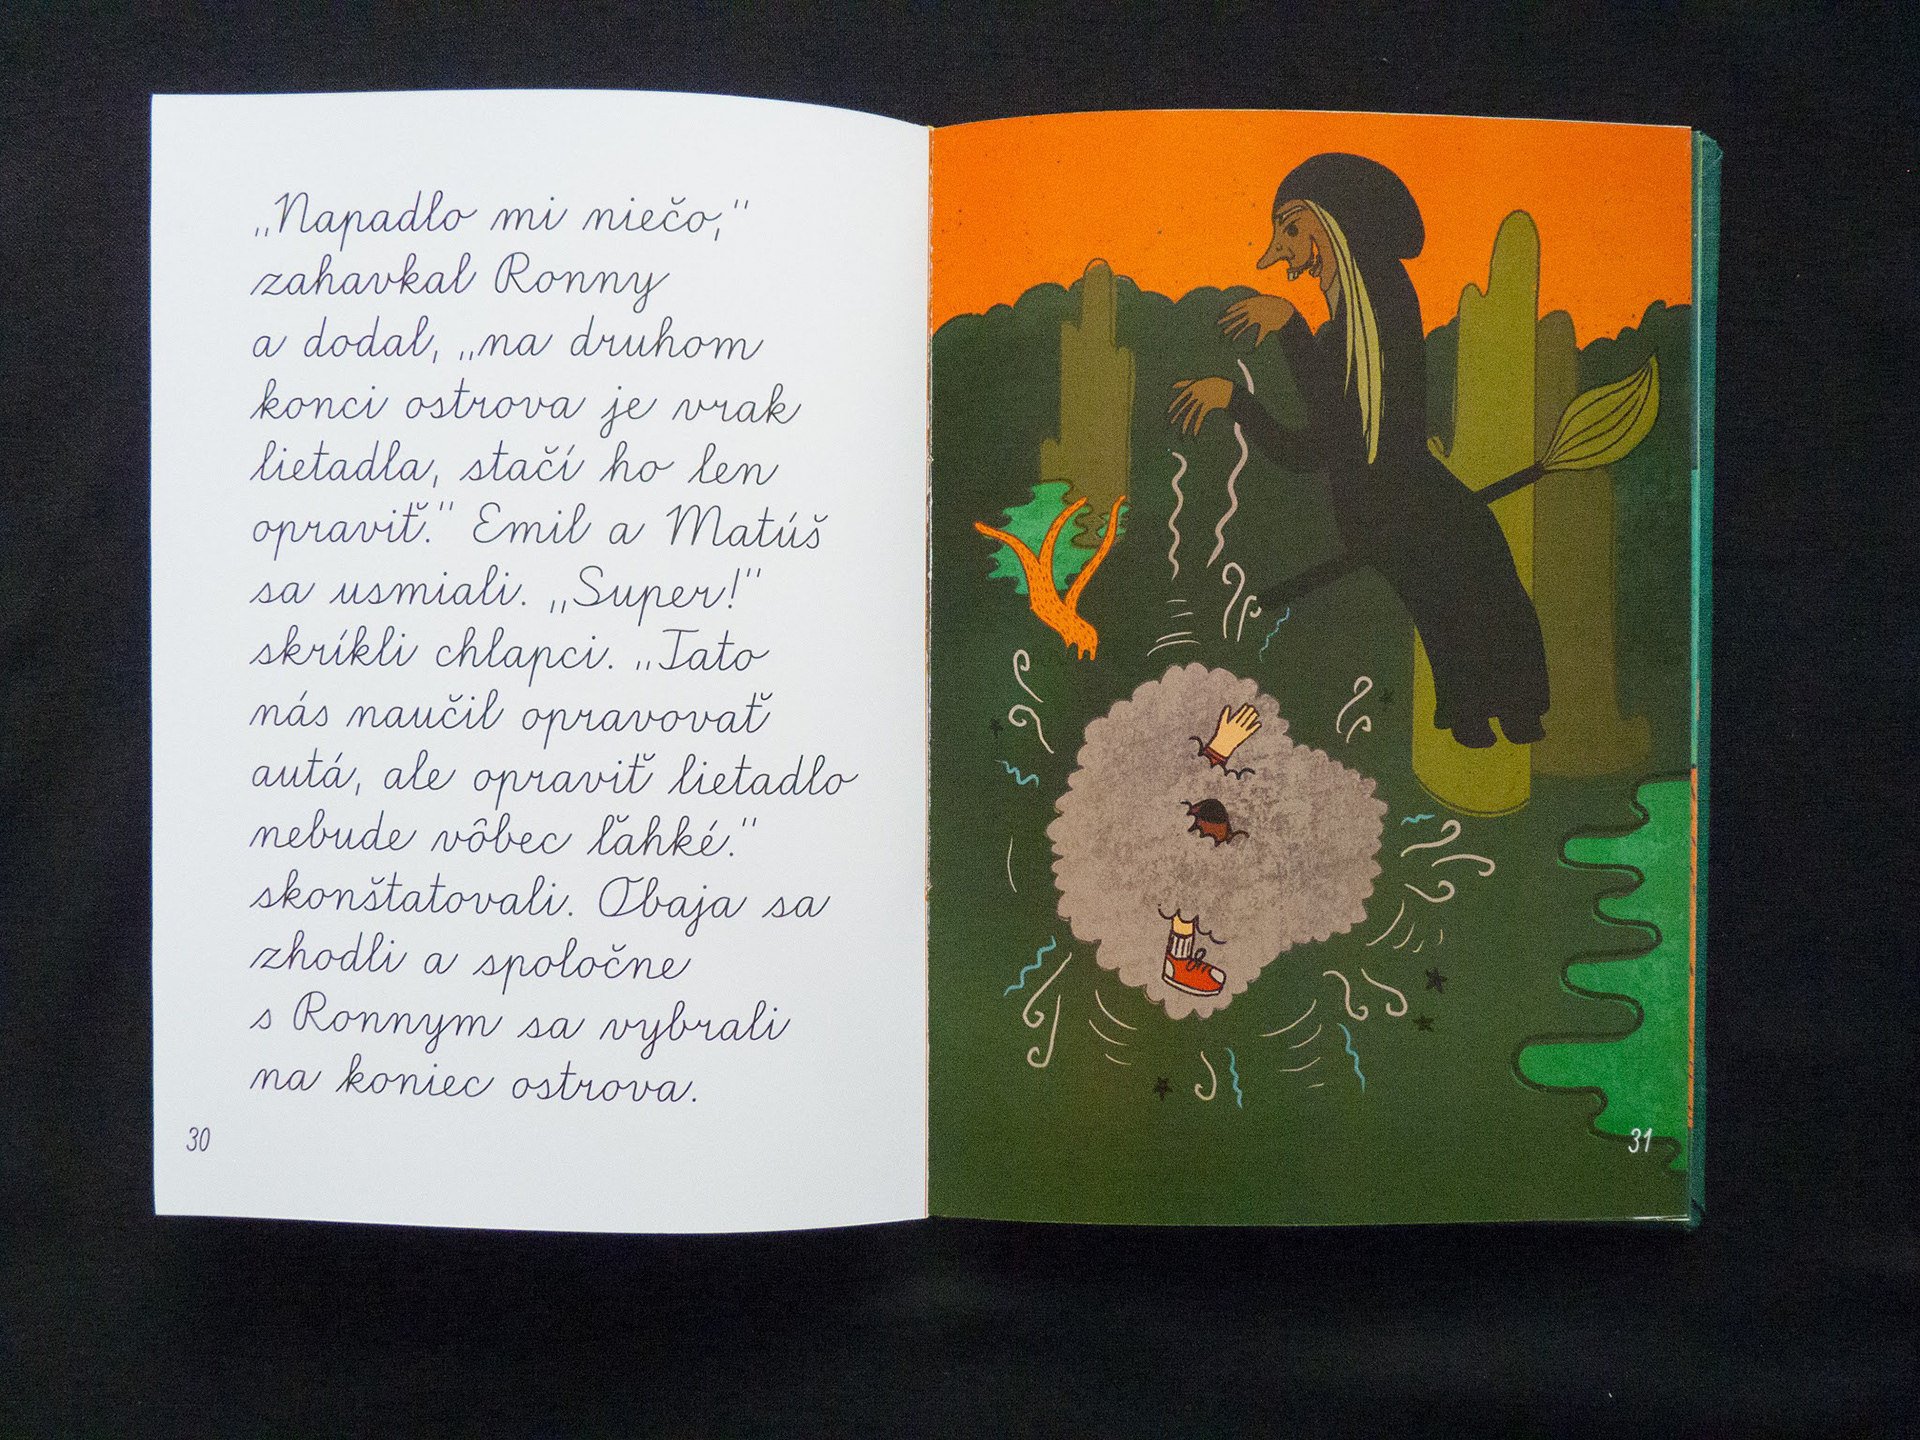 „Napadlo mi niečo,"
zahavkal Ronny
a dodal, „na druhom
konci ostrova je vrak
lietadla, stačí ho len
opraviť." Emil a Matúš
sa usmiali. „Super!"
skríkli chlapci. „Tato
nás naučil opravovať
autá, ale opraviť lietadlo
nebude vôbec ľahké."
skonštatovali. Obaja sa
zhodli a spoločne
s Ronnym sa vybrali
na koniec ostrova.
30
31